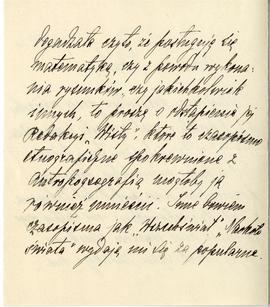 matematyką, czy z powodu wykona-
nia rysunków, czy jakichkolwiek
innych, to proszę o odstąpienie jej
Redakcyi „Wisły", które to czasopismo
etnograficzne spokrewnione z
Antropogeografią mogłoby ją
również umieścić. Inne bowiem
czasopisma jak „Wszechświat", „Naokoło
świata" wydają mi się za popularne.